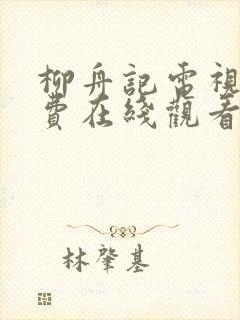 柳舟記電視
費在綫觀看
林肇基